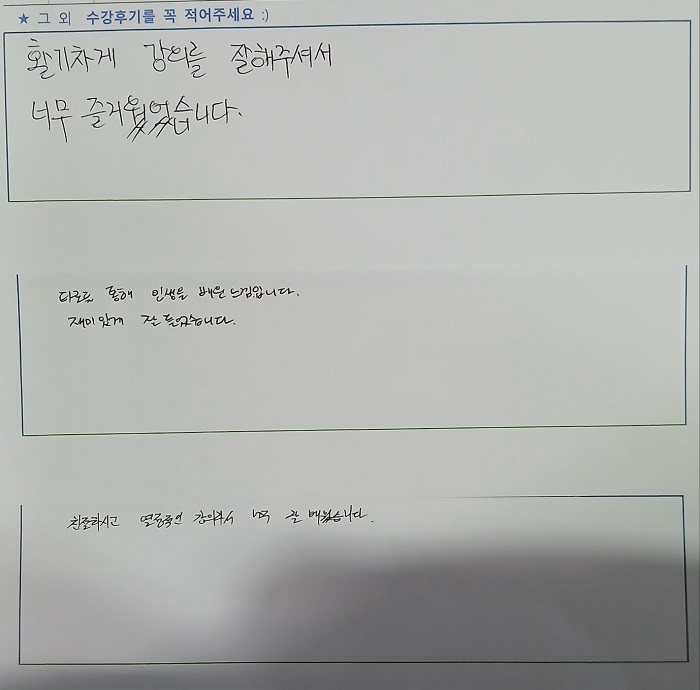 ★ 그 외 수강후기를 꼭 적어주세요 :)
활기차게 강의를 잘해주셔서
너무 즐거웠었습니다.
타로를 통해 인생을 배운 느낌입니다.
재미있게 잘 들었습니다.
친절하시고 열정적인 강의주셔 너무 잘 배웠습니다.